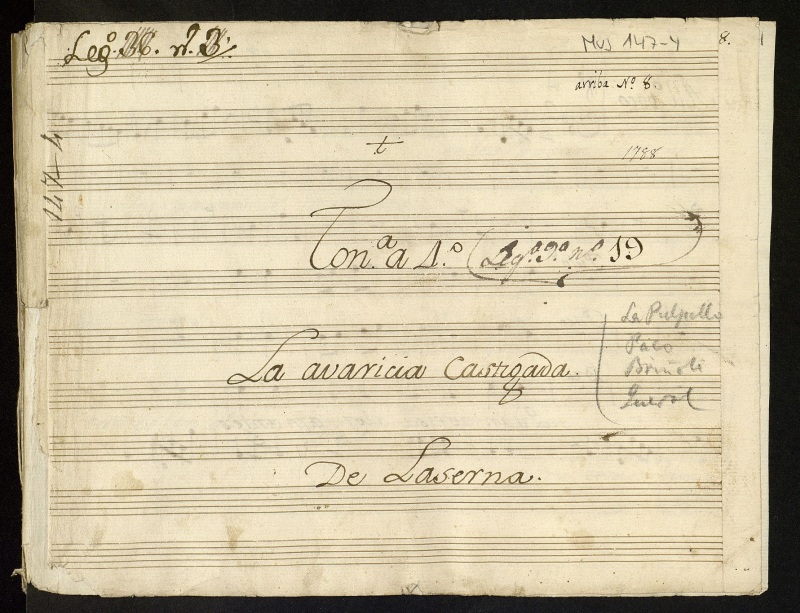 Leg.º 38. n.º 3.
MUS 147-4
8.
arriba Nº 8.
147-4
t
1788
Ton.ª a 4.º (Leg.º 9.º n.º 19
La avaricia Castigada.
La Pulpillo
Paco
Briñoli
Querol
De Laserna.